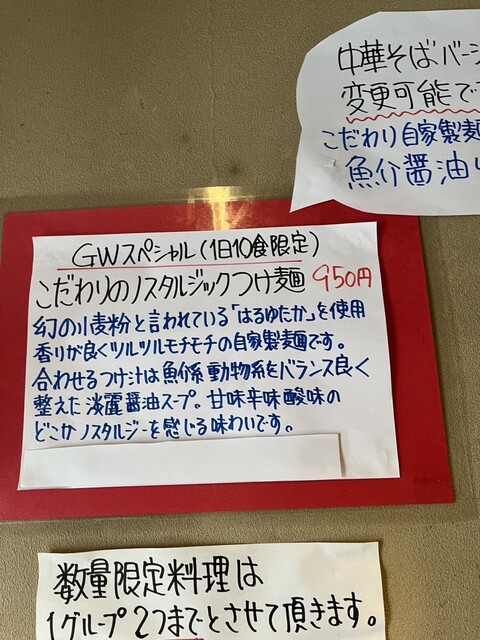 中華そばバー
変更可能で
こだわり自家製麺
魚介醤油
GWスペシャル(1日10食限定)
こだわりのノスタルジックつけ麺 950円
幻の小麦粉と言われている「はるゆたか」を使用
香りが良くツルツルモチモチの自家製麺です。
合わせるつけ汁は魚介系動物系をバランス良く
整えた淡麗醤油スープ。甘味辛味酸味の
どこかノスタルジーを感じる味わいです。
数量限定料理は
1グループ2つまでとさせて頂きます。